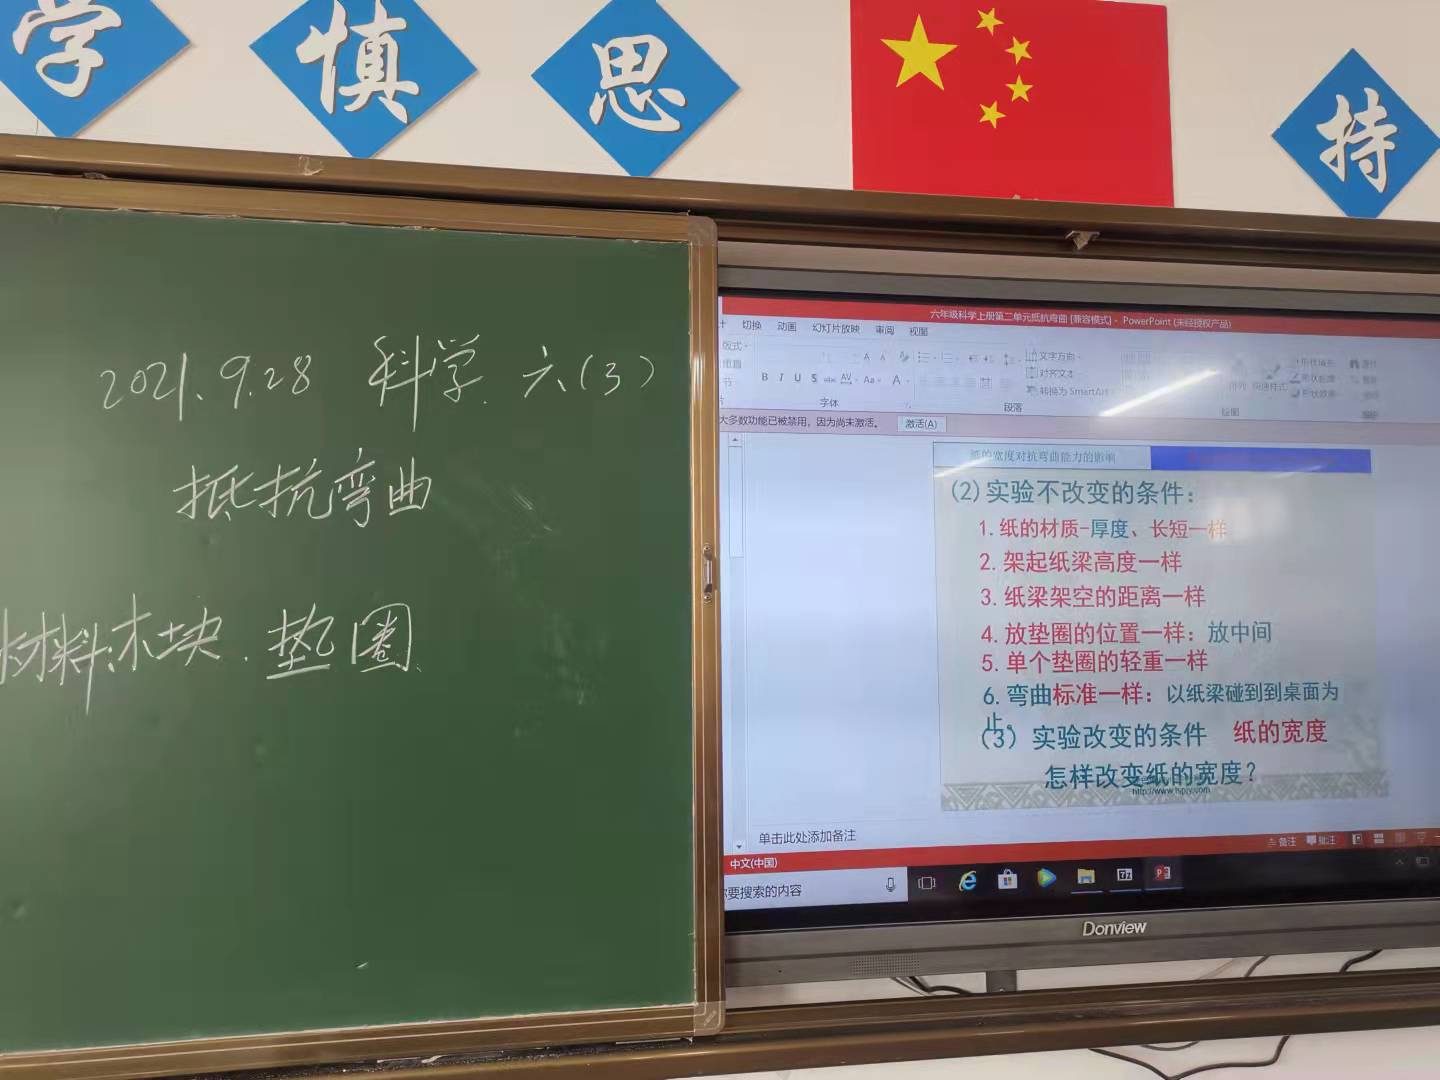 学 慎 思 持
2021.9.28 科学 六(3)
抵抗弯曲
材料:木块、垫圈
六年级科学上册第二单元抵抗弯曲 [兼容模式] - PowerPoint (未经授权产品)
切换 动画 幻灯片放映 审阅 视图
版式
重置
节
文字方向
对齐文本
转换为 SmartArt
B I U S abc AV Aa A
排列 快速样式
形状填充
形状轮廓
形状效果
字体 段落 绘图
大多数功能已被禁用，因为尚未激活。 激活(A)
纸的宽度对抗弯曲能力的影响
(2)实验不改变的条件：
1.纸的材质-厚度、长短一样
2.架起纸梁高度一样
3.纸梁架空的距离一样
4.放垫圈的位置一样：放中间
5.单个垫圈的轻重一样
6.弯曲标准一样：以纸梁碰到到桌面为
止。
(3)实验改变的条件 纸的宽度
怎样改变纸的宽度？
单击此处添加备注
中文(中国)
备注 批注
要搜索的内容
Donview